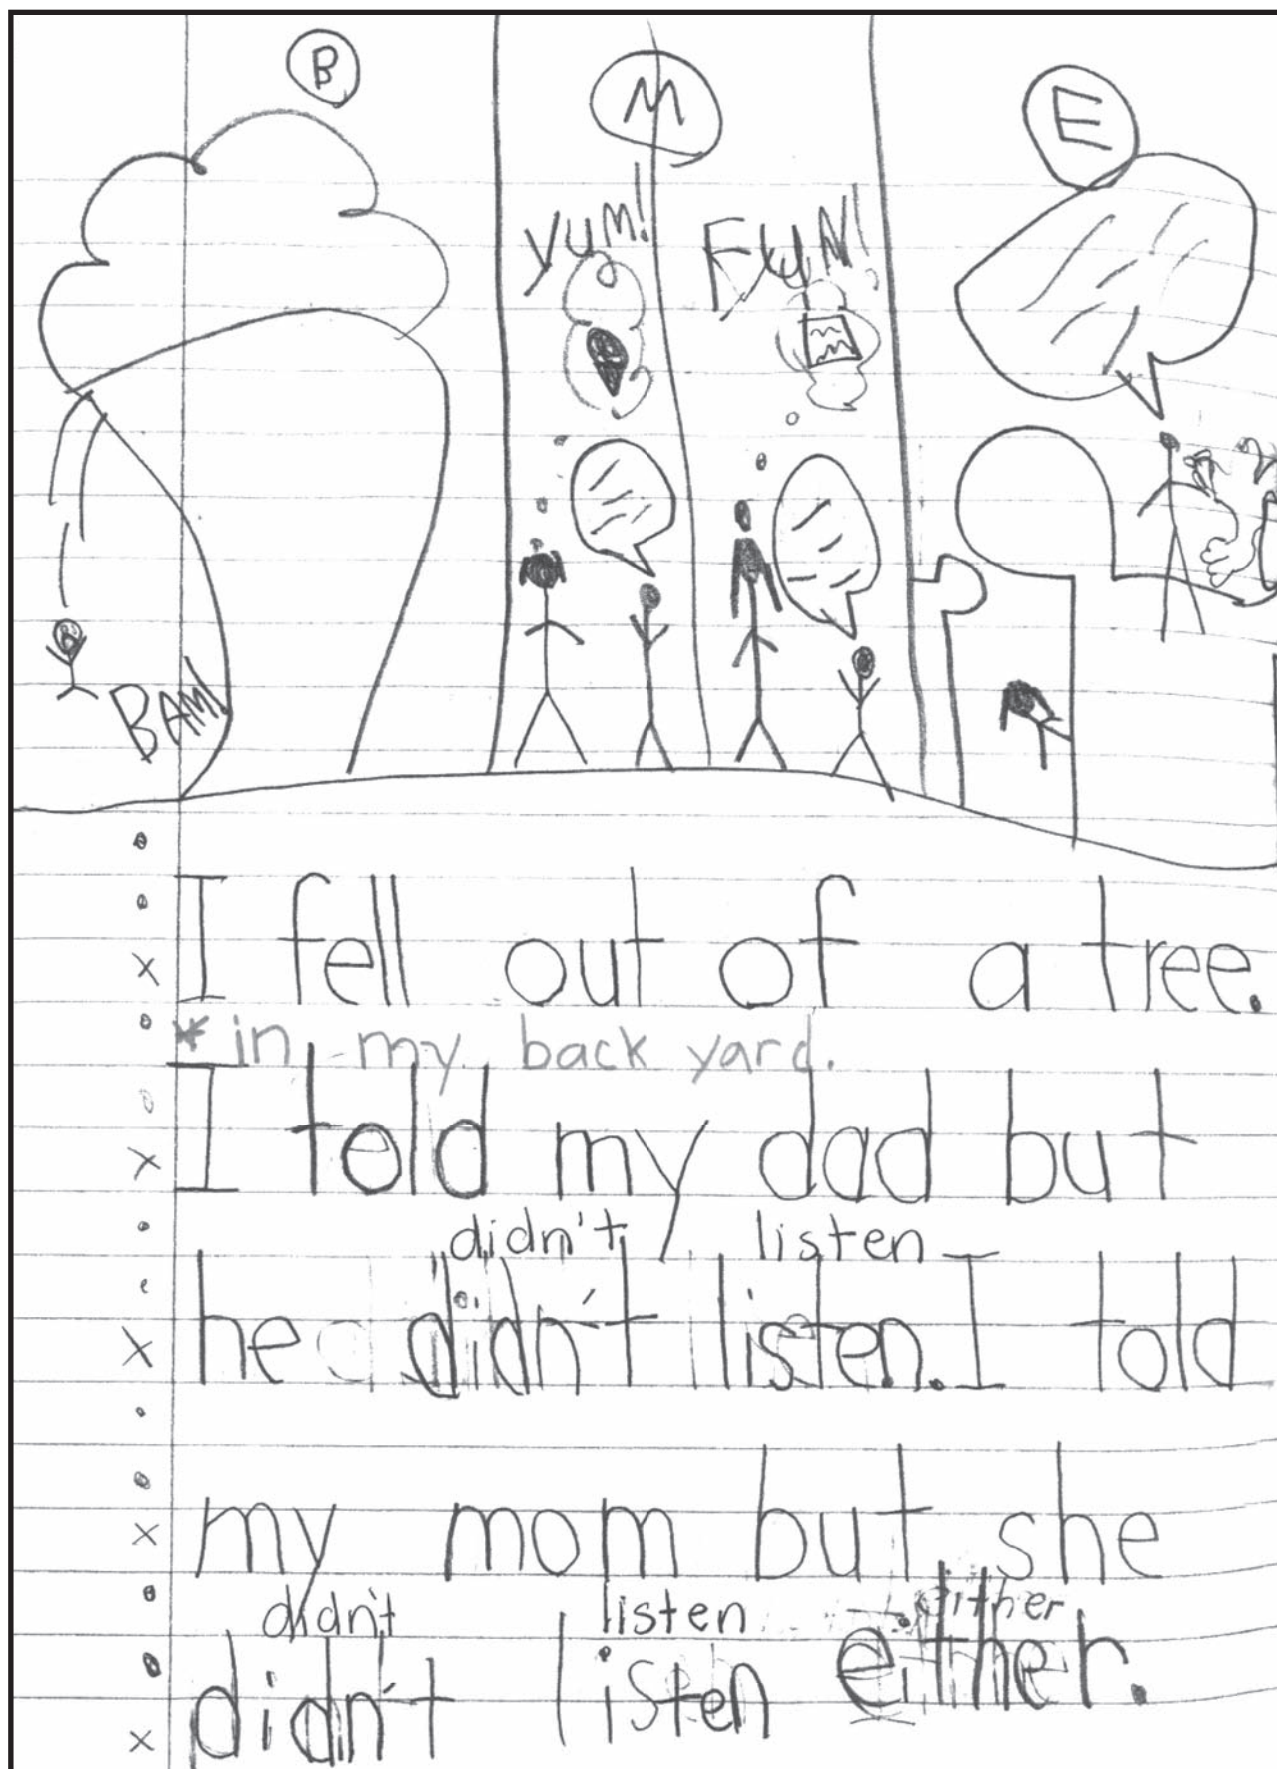 B
M
E
YUM!
FUN!
BAM!
I fell out of a tree.
* in my back yard.
I told my dad but
didn't listen
he didn't listen. I told
my mom but she
didn't listen either
didn't listen either.